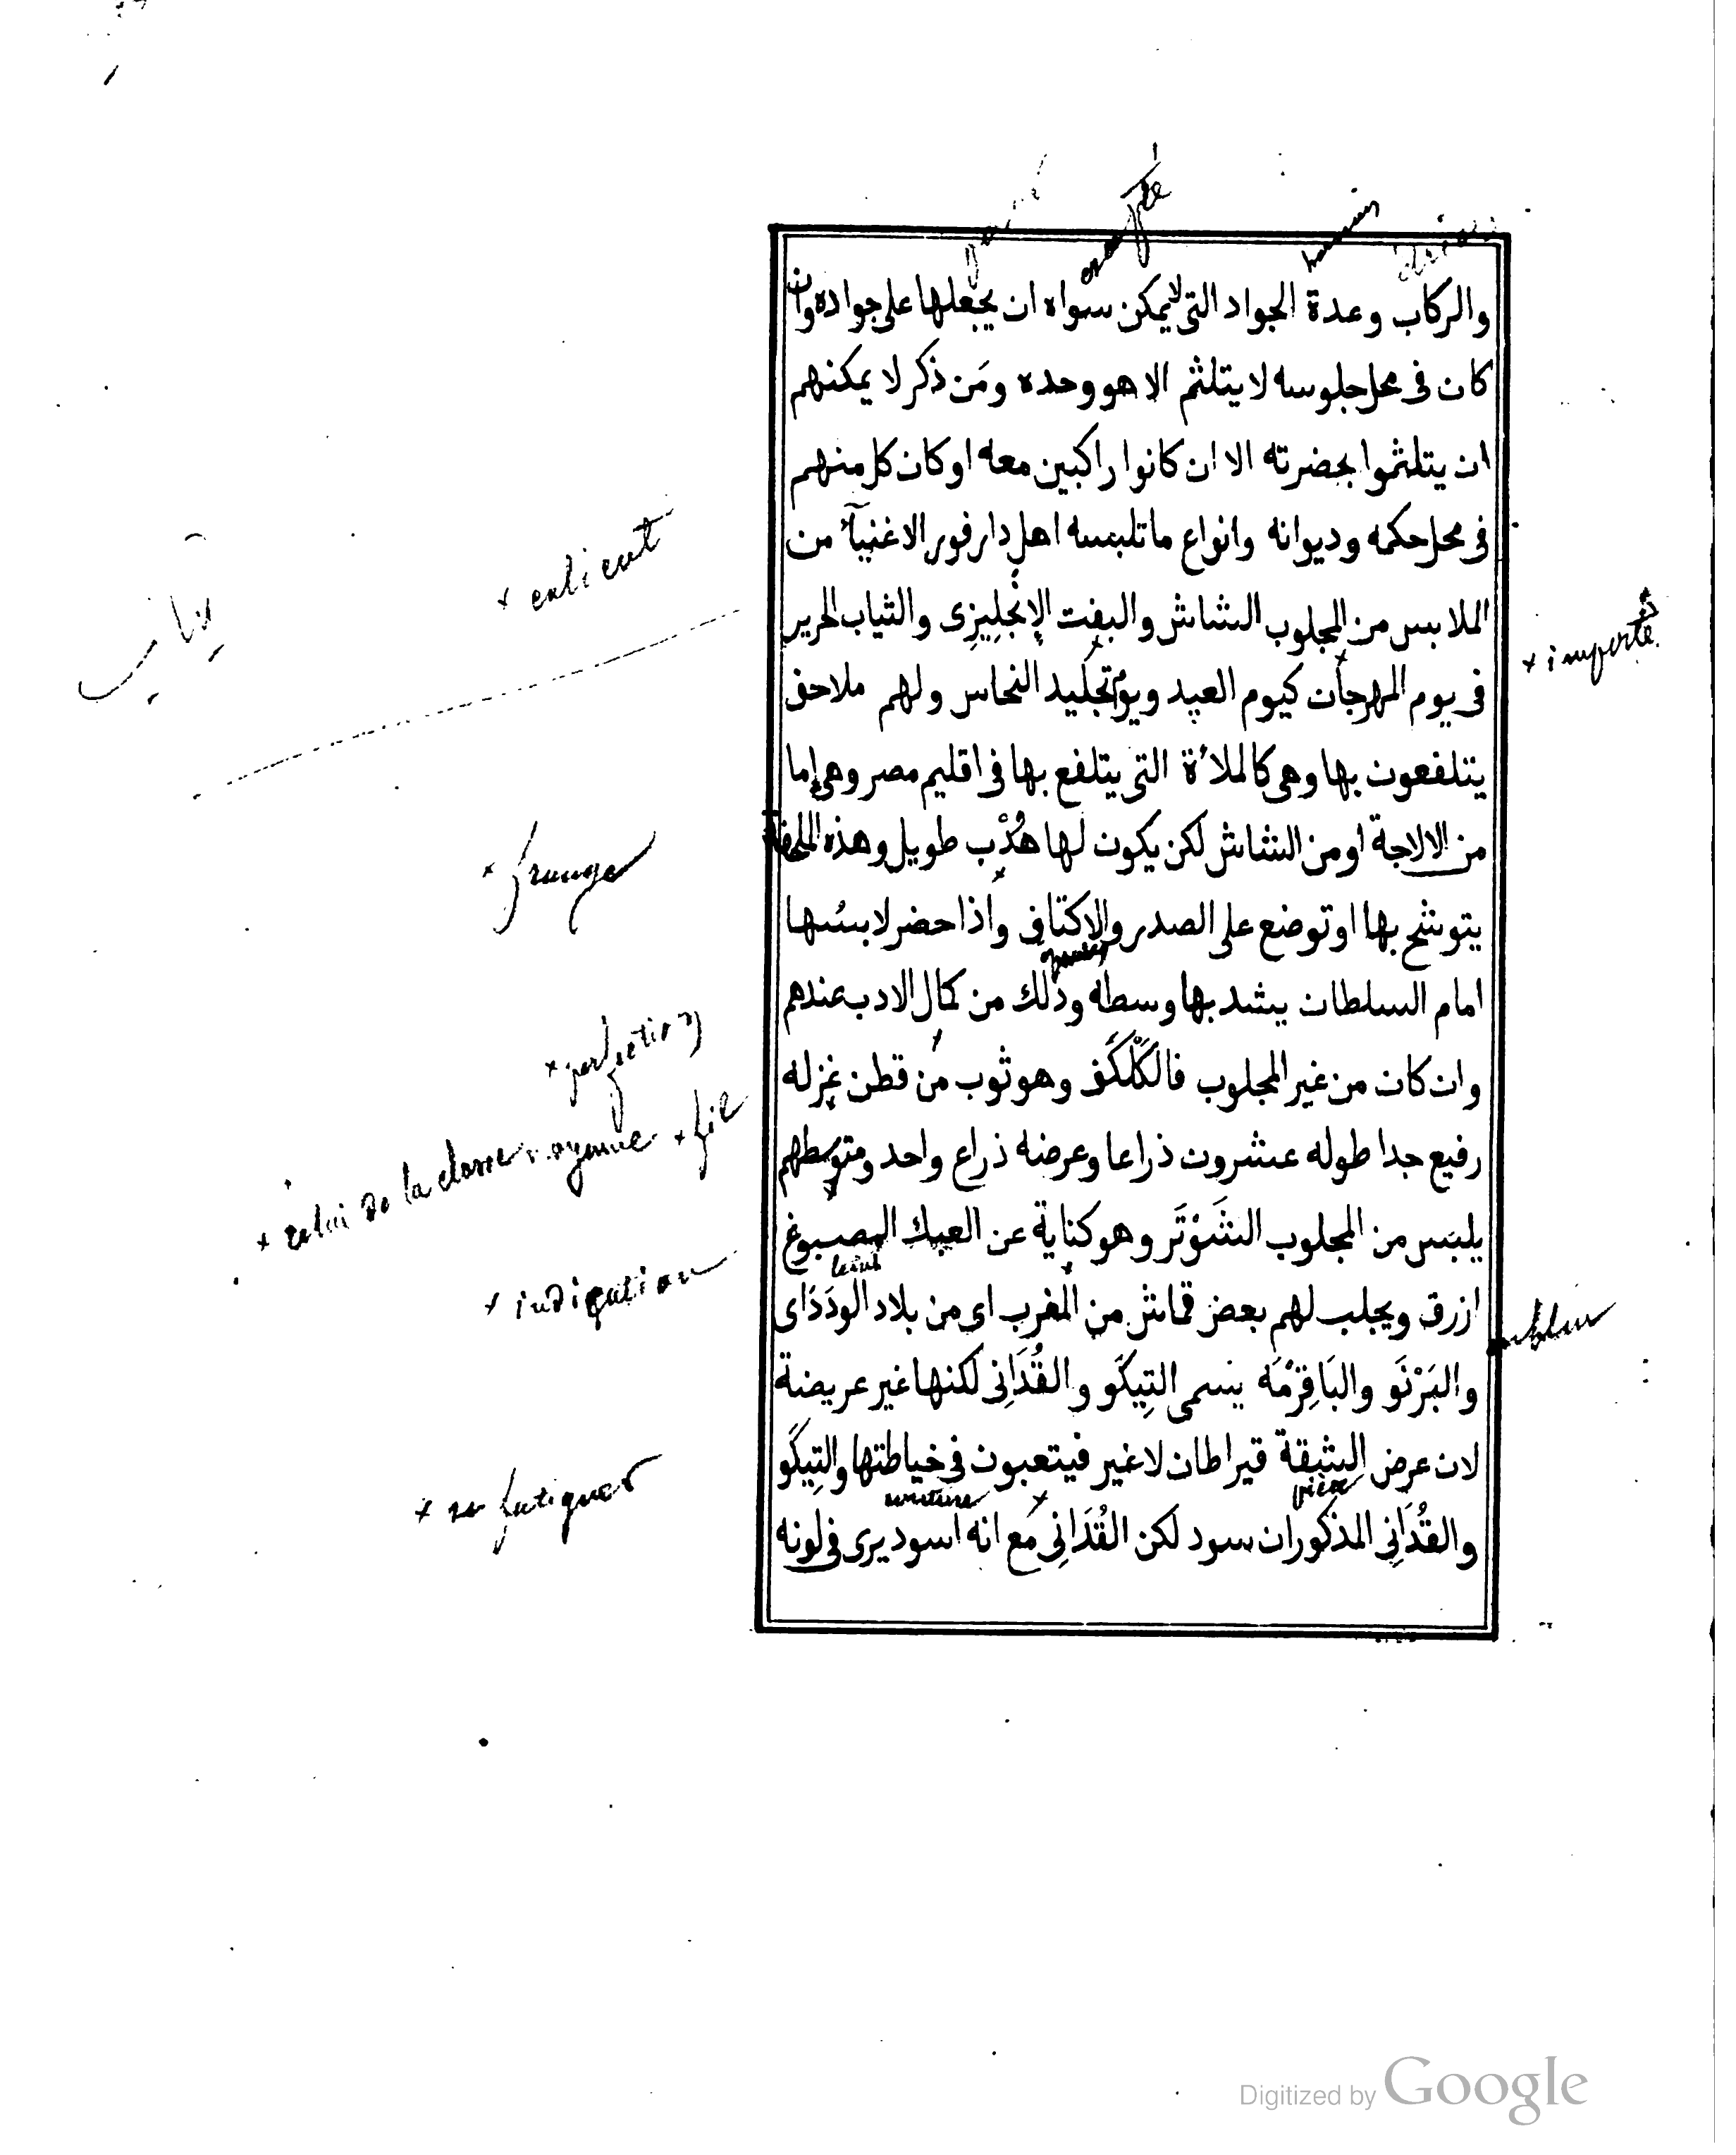 والركاب وعدة الجواد التى لا يمكن سواه ان يجعلها على جواده وان
كان فى محل جلوسه لا يتلثم الا هو وحده ومَن ذكر لا يمكنهم
ان يتلثموا بحضرته الا ان كانوا راكبين معه او كان كل منهم
فى محل حكمه وديوانه وانواع ما تلبسه اهل دارفور الاغنيآء من
الملابس من المجلوب الشاش والبفت الإنجليزى والثياب الحرير
فى يوم المهرجان كيوم العيد ويوم تجليد النحاس ولهم ملاحق
يتلفعون بها وهى كالملأة التى يتلفع بها فى اقليم مصر وهى إما
من الالاجة او من الشاش لكن يكون لها هُدْب طويل وهذه الملحفة
يتوشح بها او توضع على الصدر والاكتاف واذا حضر لابسها
امام السلطان يشد بها وسطه وذلك من كمال الادب عندهم
وان كان من غير المجلوب فالكَلْكَف وهو ثوب من قطن غزله
رفيع جدا طوله عشرون ذراعا وعرضه ذراع واحد ومتوسطهم
يلبس من المجلوب الشَوْتَر وهو كناية عن العبك المصبوغ
ازرق ويجلب لهم بعض قماش من المغرب اى من بلاد الودَدَاى
والبَرْنَو والبَاقِرْمَه يسمى التِيكَو والقُدَانِى لكنها غير عريضة
لان عرض الشقة قيراطان لا غير فيتعبون فى خياطتها والتِيكَو
والقُدَانِى المذكوران سود لكن القُدَانِى مع انه اسود يرى فى لونه
+ importé
+ frange
+ perfection
+ fil
+ celui de la classe moyenne
teint
+ indication
bleu
pièce
couture
+ se fatiguer
Digitized by Google